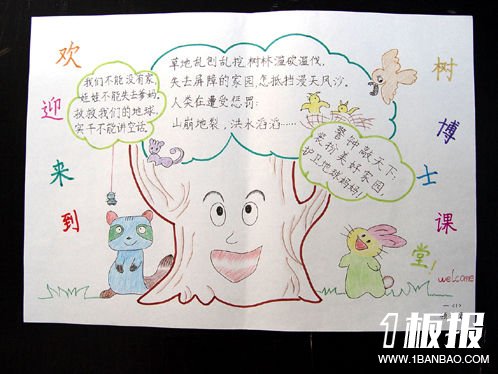 欢迎来到
树博士课堂!
welcome
草地乱刨乱挖,树林滥砍滥伐。
失去屏障的家园,怎抵挡漫天风沙。
人类在遭受惩罚:
山崩地裂,洪水滔滔……
我们不能没有家,
娃娃不能失去爹妈。
拯救我们的地球,
实干不能讲空话。
警钟敲天下:
装扮美好家园,
护卫地球妈妈!
1板报
WWW.1BANBAO.COM